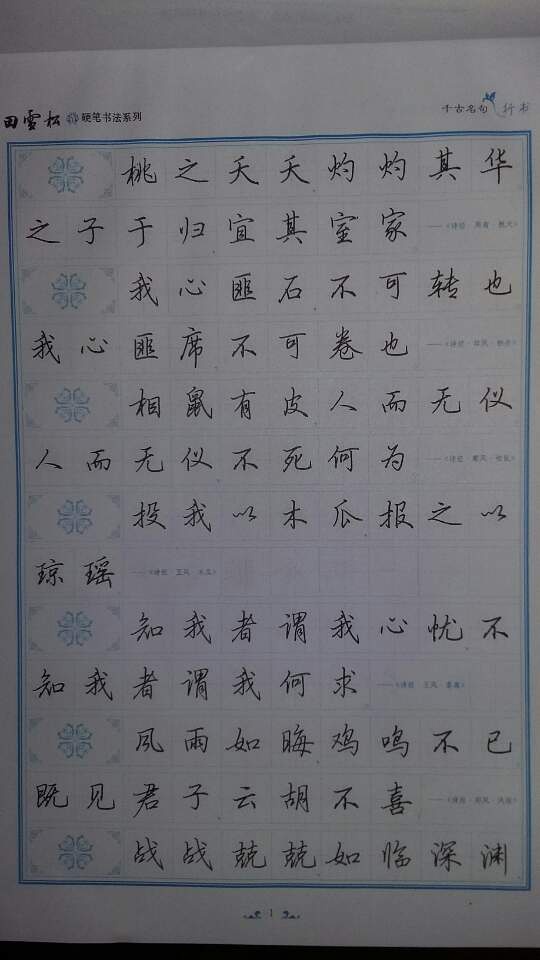 田雪松 硬笔书法系列
千古名句 行书
桃之夭夭灼灼其华
之子于归宜其室家 ——《诗经·周南·桃夭》
我心匪石不可转也
我心匪席不可卷也 ——《诗经·邶风·柏舟》
相鼠有皮人而无仪
人而无仪不死何为 ——《诗经·鄘风·相鼠》
投我以木瓜报之以
琼瑶 ——《诗经·卫风·木瓜》
知我者谓我心忧不
知我者谓我何求 ——《诗经·王风·黍离》
风雨如晦鸡鸣不已
既见君子云胡不喜 ——《诗经·郑风·风雨》
战战兢兢如临深渊
1